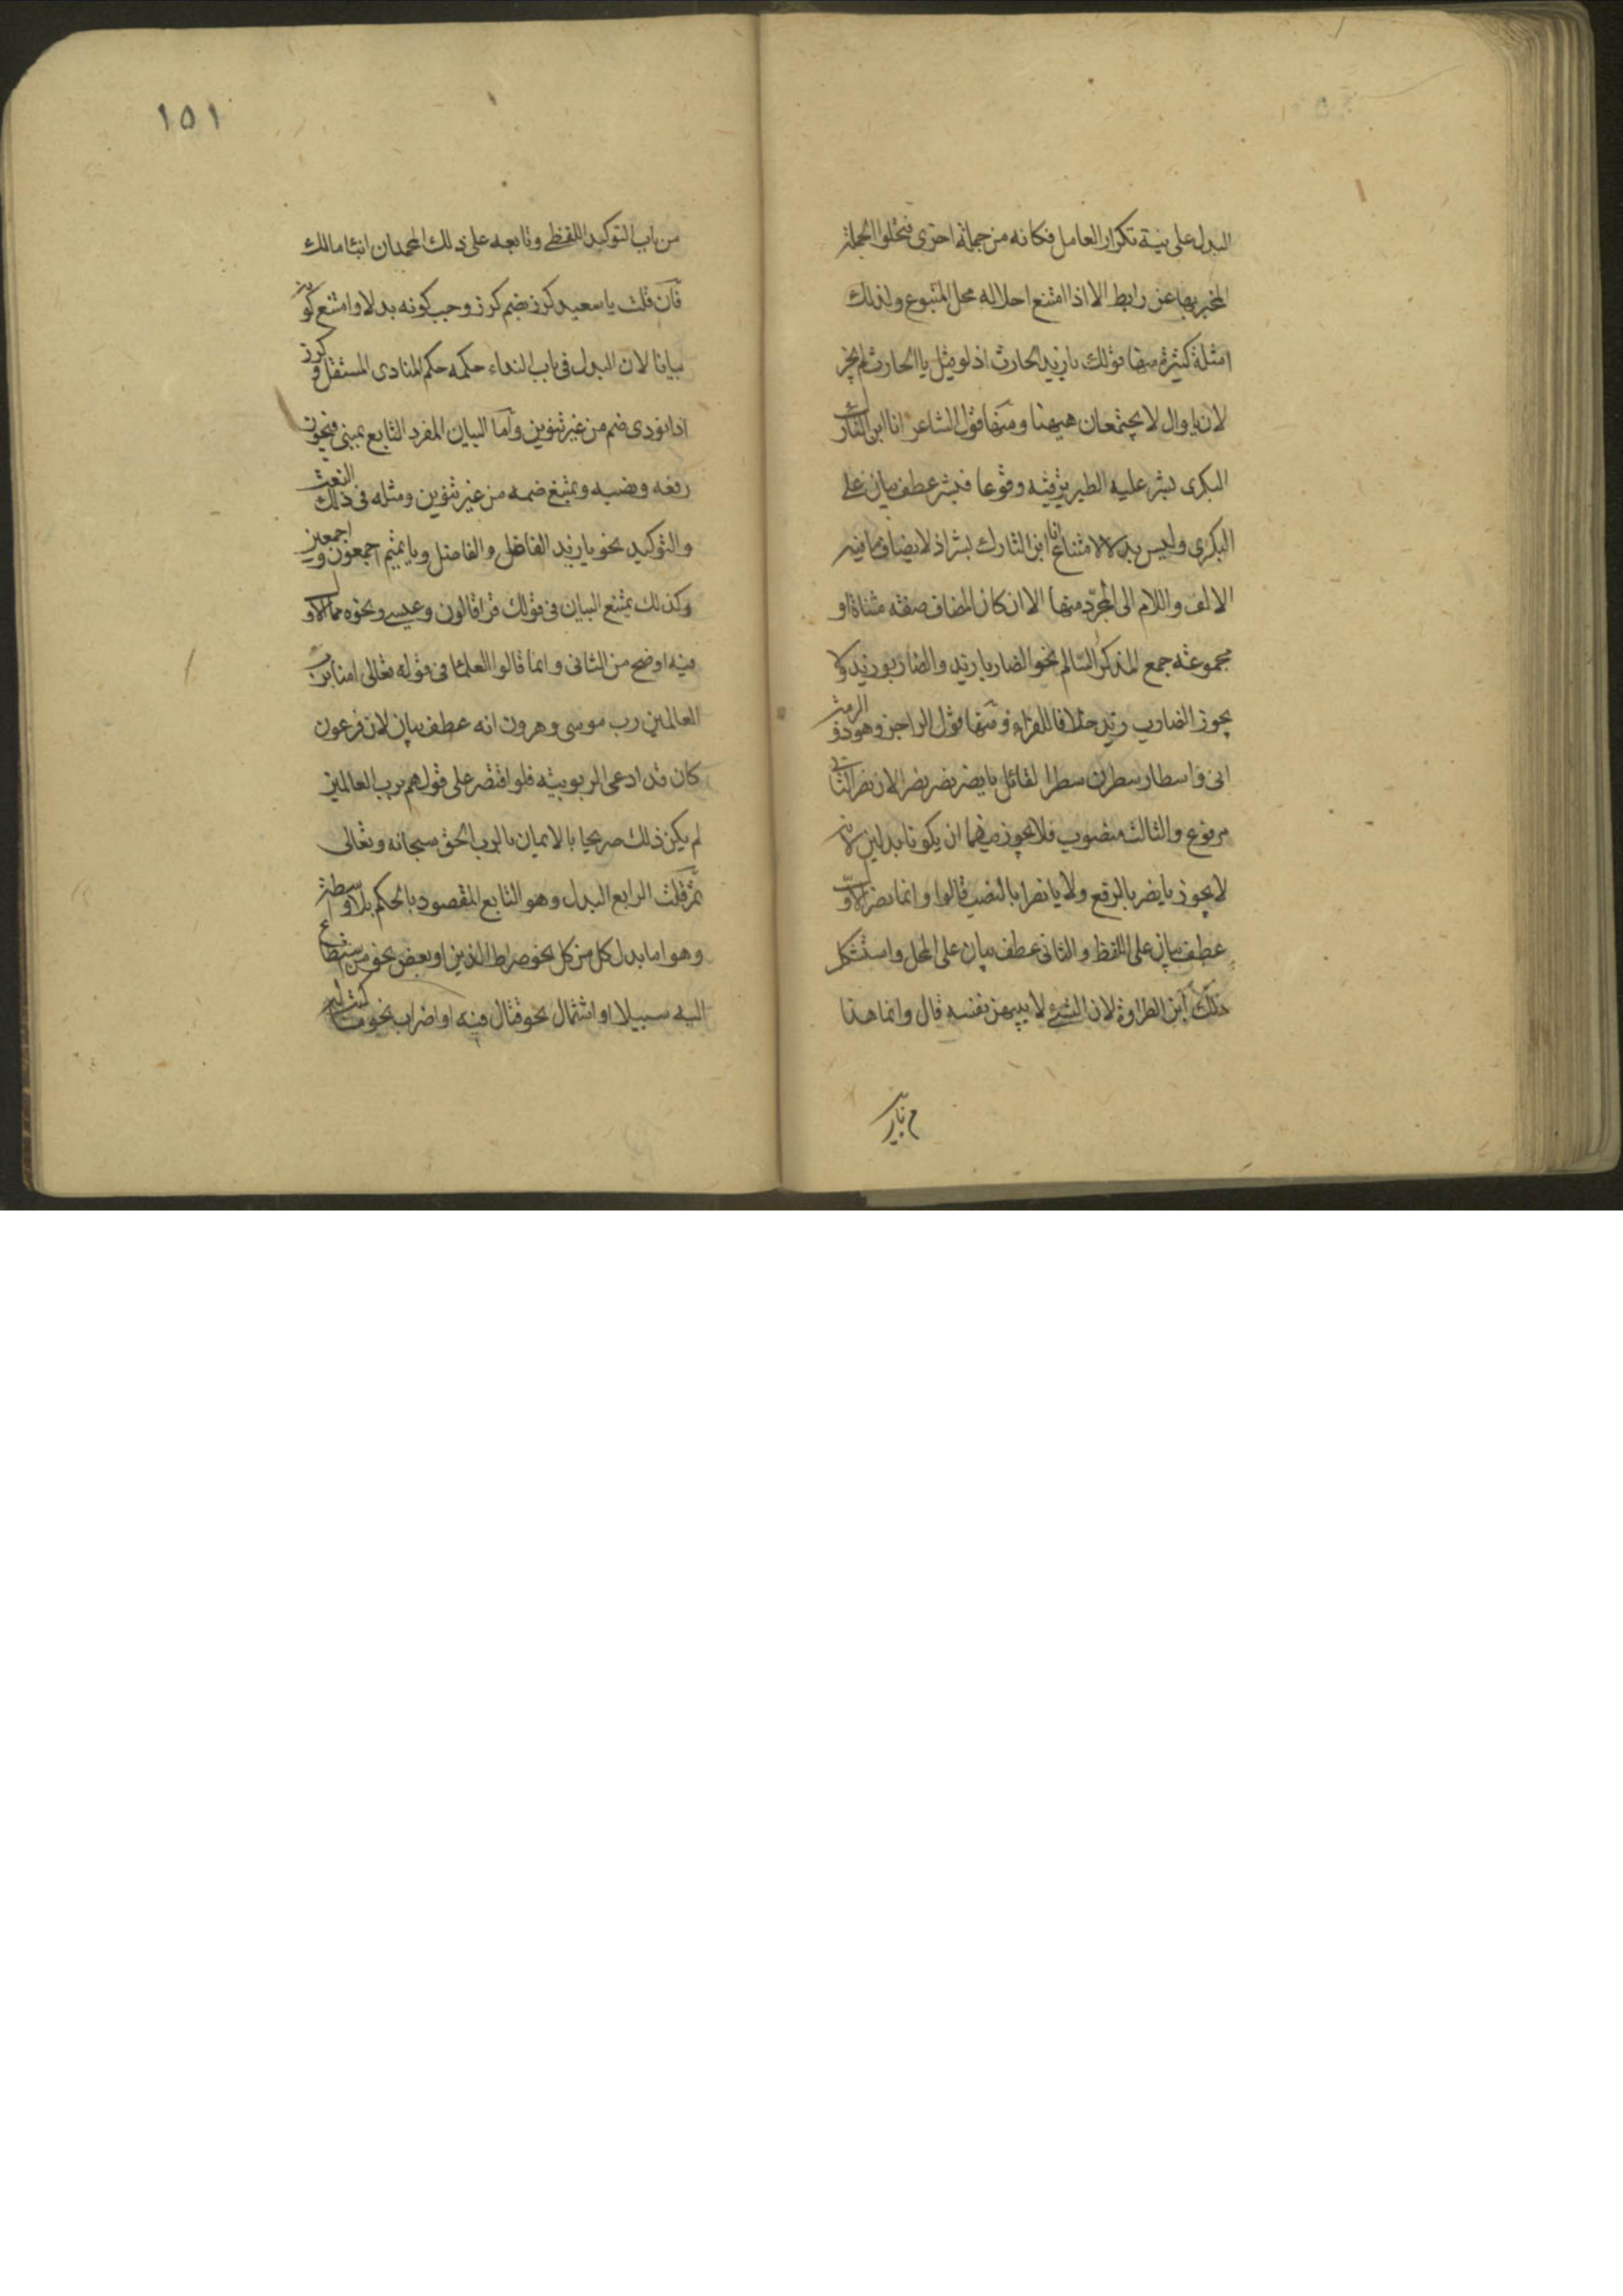 البدل على نية تكرار العامل فكانه من جملة اخرى فتخلوا الجملة
المخبر بها عن رابط الا اذا امتنع احلاله محل المتبوع ولذلك
امثلة كثيرة منها قولك يا زيد الحارث اذ لو قيل يا الحارث لم يجز
لان يا وال لا يجتمعان هيهنا ومنها قول الشاعر انا ابن التارك
البكرى بشر عليه الطير ترقبه وقوعا فبشر عطف بيان على
البكرى وليس بدلا لامتناع انا ابن التارك بشر اذ لا يضاف ما فيه
الالف واللام الى المجرد منها الا ان كان المضاف صفة مثناة او
مجموعة جمع المذكر السالم نحو الضاربا زيد والضاربو زيد ولا
يجوز الضارب زيد خلافا للفراء ومنها قول الراجز وهو ذو الرمة
انى واسطار سطرن سطرا لقائل يا نصر نصر نصرا لان نصر الثانى
مرفوع والثالث منصوب فلا يجوز فيهما ان يكونا بدلين لانه
لا يجوز يا نصر بالرفع ولا يا نصرا بالنصب قالوا وانما نصر الاول
عطف بيان على اللفظ والثانى عطف بيان على المحل واستشكل
ذلك ابن الطراوة لان الشىء لا يبين نفسه قال وانما هذا
١٥١
من باب التوكيد اللفظى وتابعه على ذلك المحمدان ابنا مالك
فان قلت يا سعيد كرز بضم كرز وجب كونه بدلا وامتنع كونه
بيانا لان البدل فى باب النداء حكمه حكم المنادى المستقل وكرز
اذا نودى ضم من غير تنوين واما البيان المفرد التابع لمبنى فيجوز
رفعه ونصبه ويمتنع ضمه من غير تنوين ومثله فى ذلك النعت
والتوكيد نحو يا زيد الفاضل والفاضل ويا تميم اجمعون واجمعين
وكذلك يمتنع البيان فى قولك قرا قالون وعيسى ونحوه مما الاول
فيه اوضح من الثانى وانما قالوا العلما فى قوله تعالى امنا برب
العالمين رب موسى وهرون انه عطف بيان لان فرعون
كان قد ادعى الربوبية فلو اقتصر على قولهم برب العالمين
لم يكن ذلك صريحا بالايمان بالرب الحق سبحانه وتعالى
ثم قلت الرابع البدل وهو التابع المقصود بالحكم بلا واسطة
وهو اما بدل كل من كل نحو صراط الذين او بعض نحو من استطاع
اليه سبيلا او اشتمال نحو قتال فيه او اضراب نحو ما كتب له